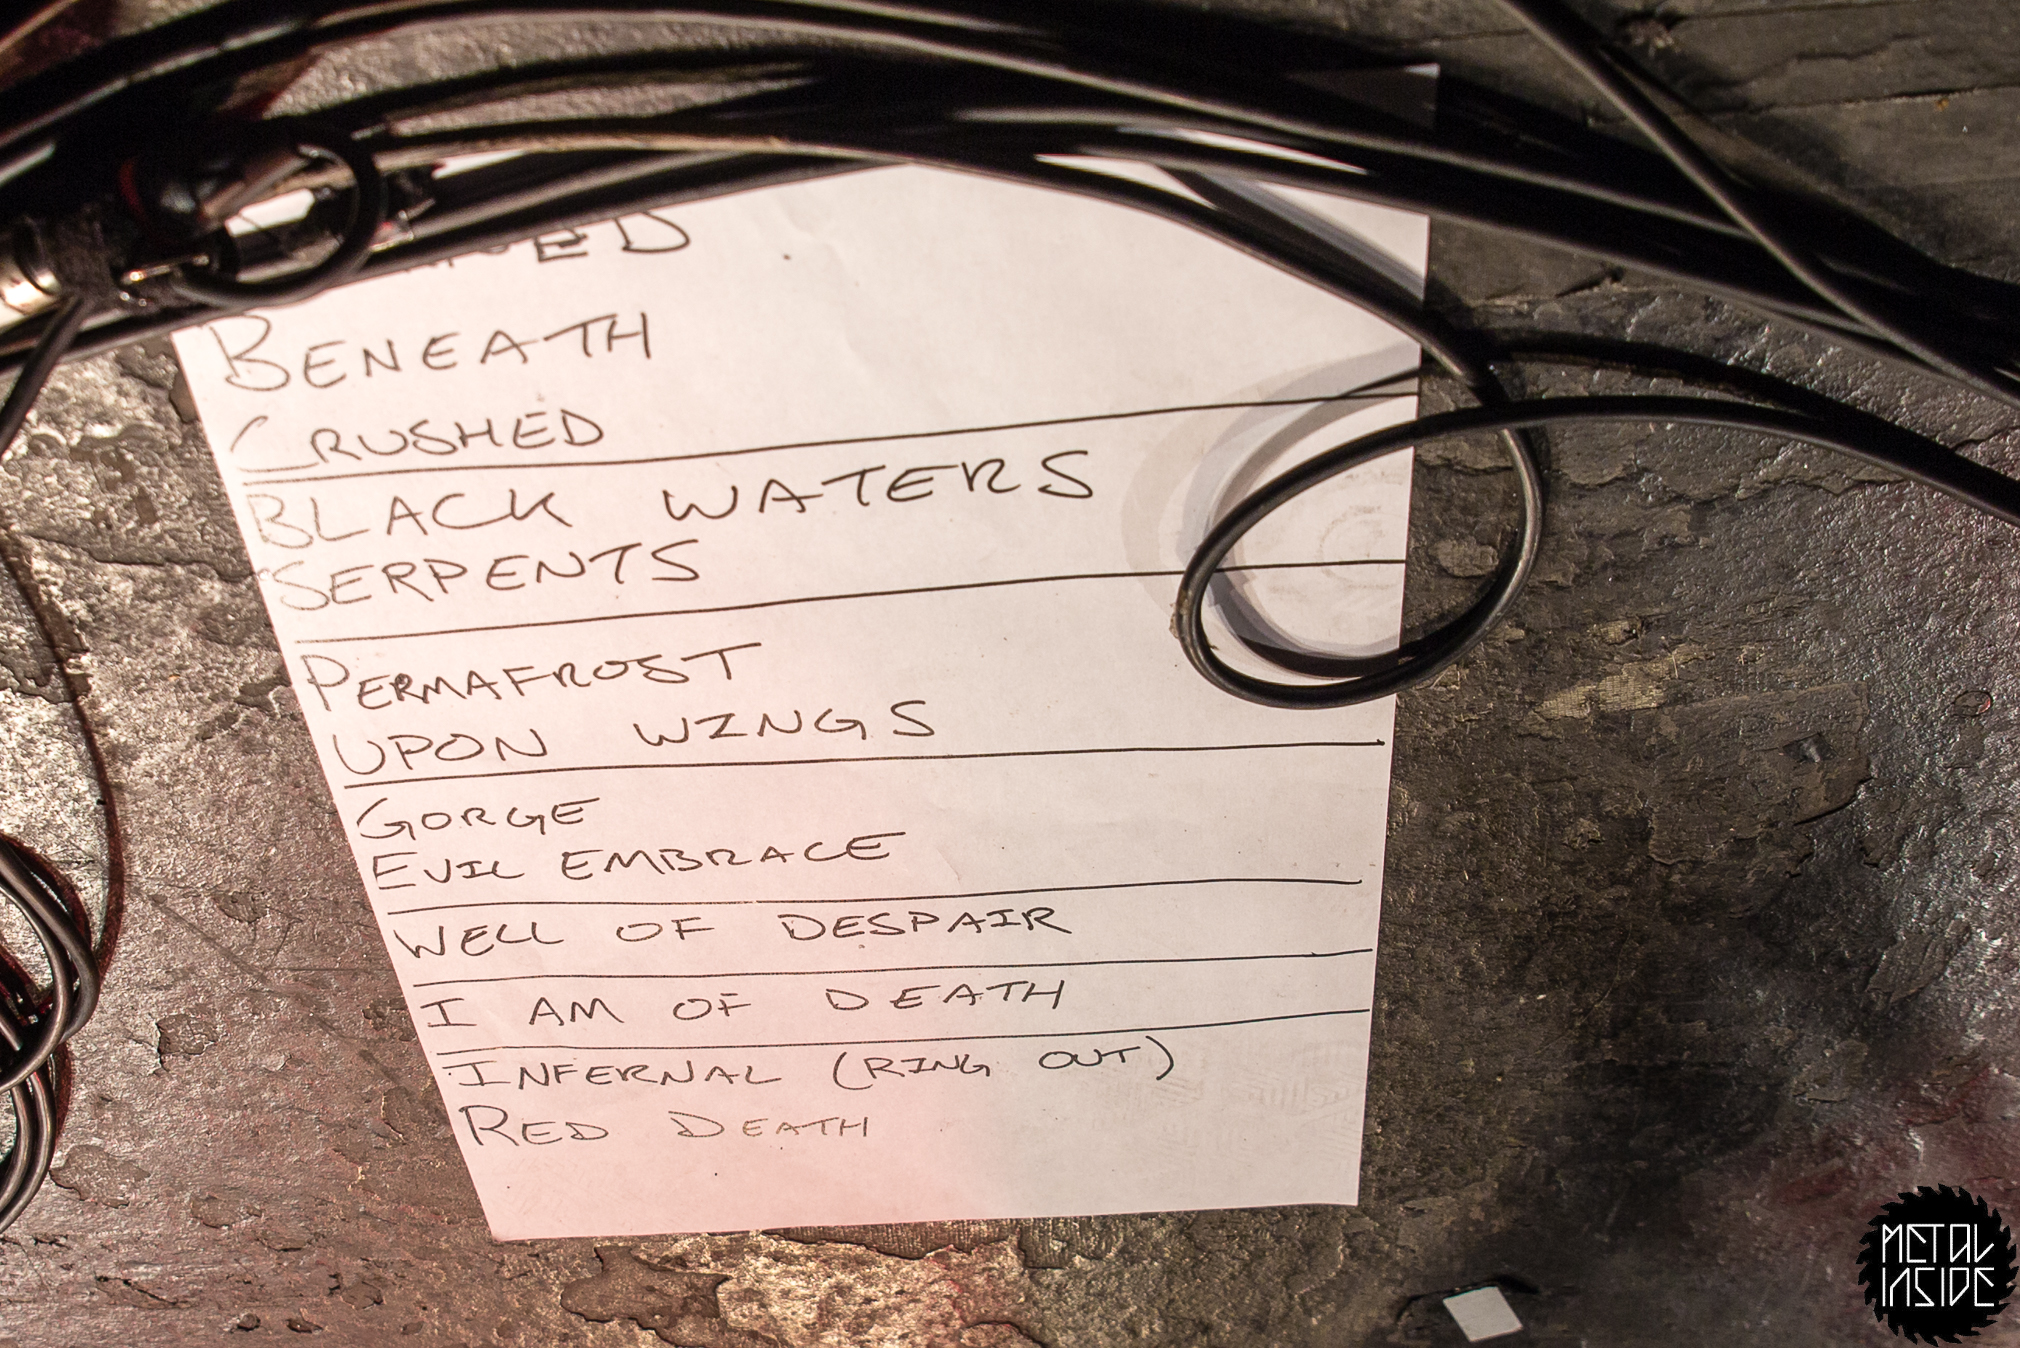 BENEATH
CRUSHED
BLACK WATERS
SERPENTS
PERMAFROST
UPON WINGS
GORGE
EVIL EMBRACE
WELL OF DESPAIR
I AM OF DEATH
INFERNAL (RING OUT)
RED DEATH
METAL
INSIDE